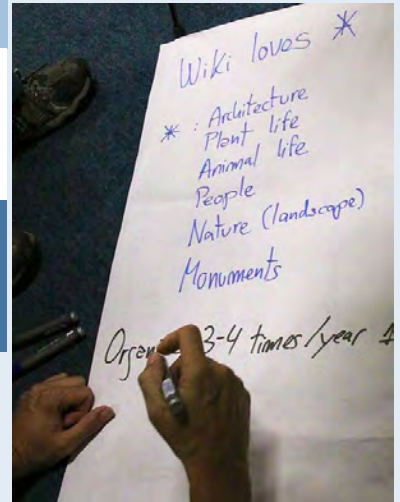 Wiki loves *
* : Architecture
Plant life
Animal life
People
Nature (landscape)
Monuments
3-4 times/year